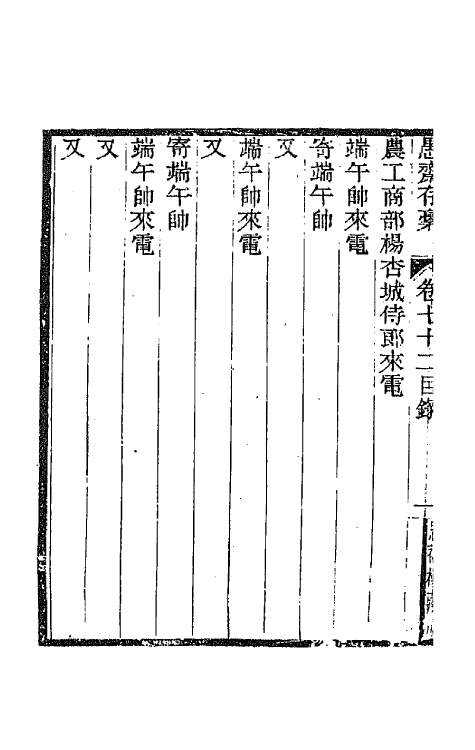 愚齋存稾 卷七十二目錄
農工商部楊杏城侍郎來電
端午帥來電
寄端午帥
又
端午帥來電
又
寄端午帥
端午帥來電
又
又